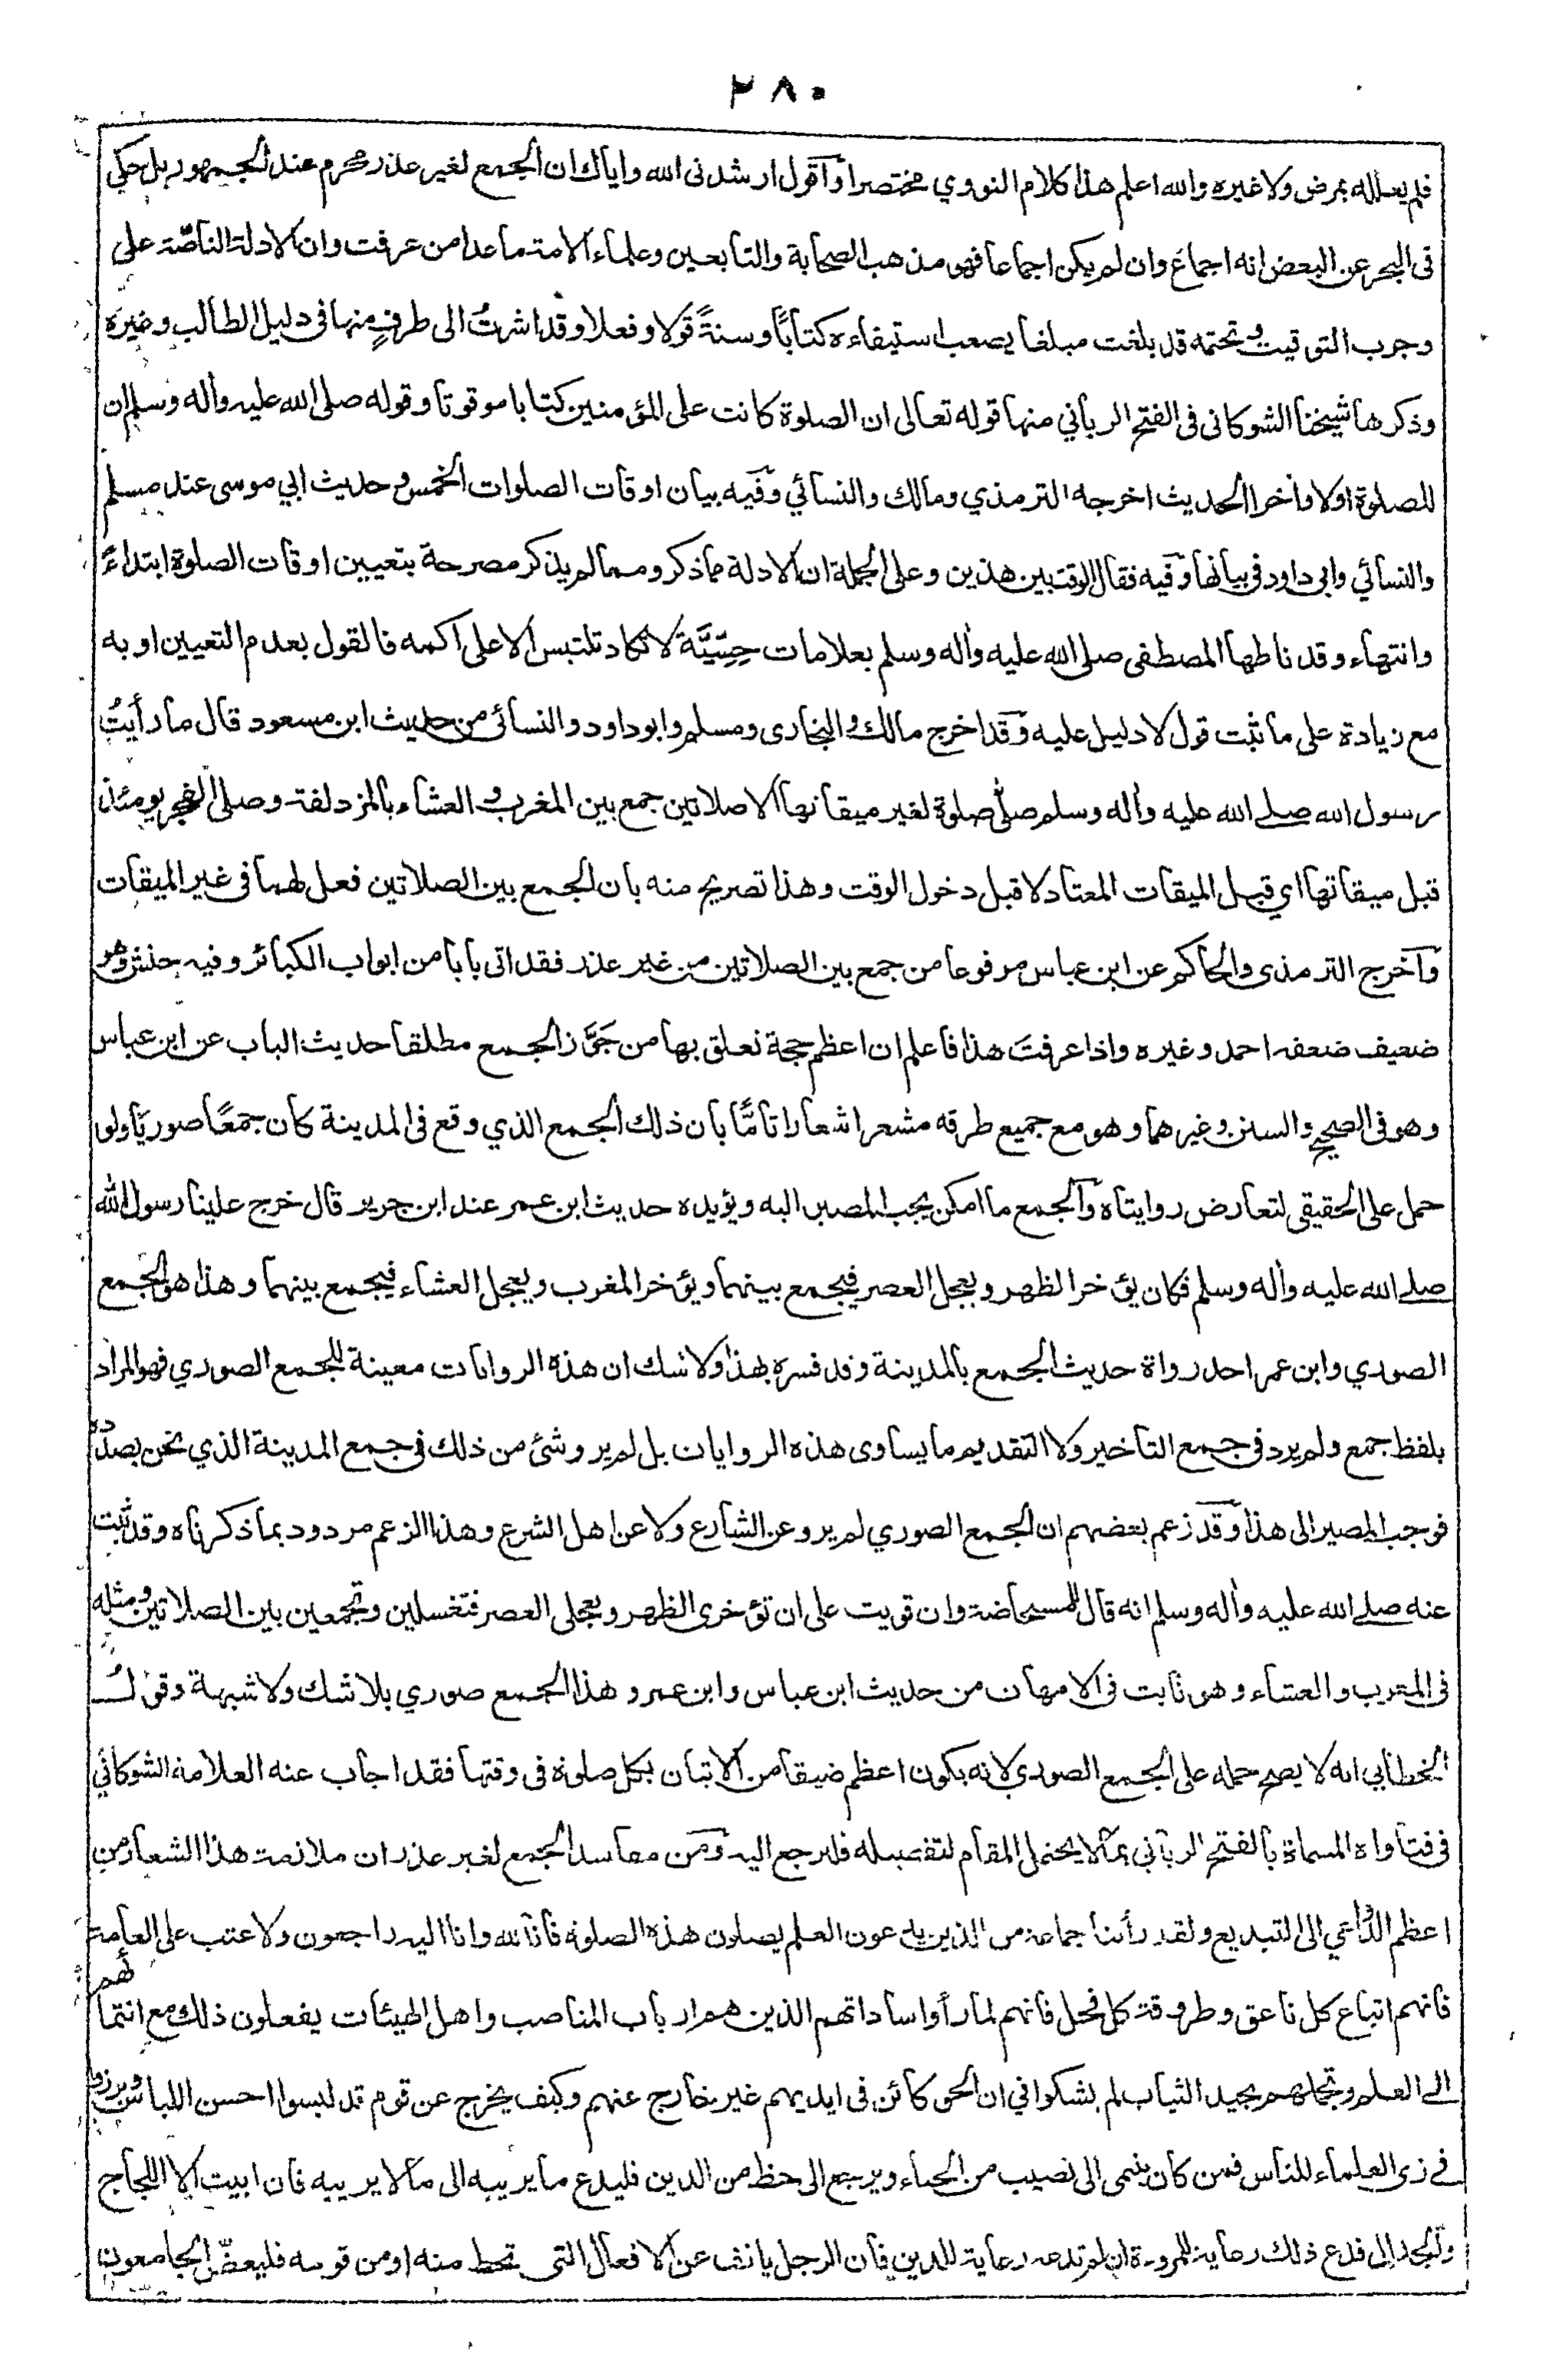 ٢٨٠
فلم يعلله بمرض ولا غيره والله اعلم هذا كلام النووي مختصرا وآقول ارشدنى الله واياك ان الجمع لغير عذر محرم عند الجمهور بل حكي
فى البحر عن البعض انه اجماع وان لم يكن اجماعا فهو مذهب الصحابة والتابعين وعلماء الامة ما عدا من عرفت وان الادلة الناصّة على
وجوب التوقيت وتحتمه قد بلغت مبلغا يصعب استيفاءه كتابًا وسنةً قولا وفعلا وقد اشرتُ الى طرفٍ منها فى دليل الطالب وغيره
وذكرها شيخنا الشوكانى فى الفتح الرباني منها قوله تعالى ان الصلوة كانت على المؤمنين كتابا موقوتا وقوله صلى الله عليه واٰله وسلم ان
للصلوة اولا واٰخرا الحديث اخرجه الترمذي ومالك والنسائي وفيه بيان اوقات الصلوات الخمس وحديث ابي موسى عند مسلم
والنسائي وابى داود فى بيانها وفيه فقال الوقت بين هذين وعلى الجملة ان الادلة مما ذكر ومما لم يذكر مصرحة بتعيين اوقات الصلوة ابتداءً
وانتهاء وقد ناطها المصطفى صلى الله عليه واٰله وسلم بعلامات حِسِّيَّة لا تكاد تلتبس الا على اكمه فالقول بعدم التعيين او به
مع زيادة على ما ثبت قول لا دليل عليه وقد اخرج مالك والبخارى ومسلم وابو داود والنسائى من حديث ابن مسعود قال ما رأيتُ
رسول الله صلے الله عليه واٰله وسلم صلّى صلوة لغير ميقاتها الا صلاتين جمع بين المغرب والعشاء بالمزدلفة وصلى الفجر يومئذ
قبل ميقاتها اي قبل الميقات المعتاد لا قبل دخول الوقت وهذا تصريح منه بان الجمع بين الصلاتين فعل لهما فى غير الميقات
وآخرج الترمذى والحاكم عن ابن عباس مرفوعا من جمع بين الصلاتين من غير عذر فقد اتى بابا من ابواب الكبائر وفيه حنش وهو
ضعيف ضعفه احمد وغيره واذا عرفتَ هذا فاعلم ان اعظم حجة تعلق بها من جَوَّز الجمع مطلقا حديث الباب عن ابن عباس
وهو فى الصحيح والسنن وغيرهما وهو مع جميع طرقه مشعر اشعارا تامًّا بان ذلك الجمع الذي وقع فى المدينة كان جمعًا صوريًا ولو
حمل على الحقيقى لتعارض روايتاه وآلجمع ما امكن يجب المصير اليه ويؤيده حديث ابن عمر عند ابن جرير قال خرج علينا رسول الله
صلے الله عليه واٰله وسلم فكان يؤخر الظهر ويعجل العصر فيجمع بينهما ويؤخر المغرب ويعجل العشاء فيجمع بينهما وهذا هو الجمع
الصوري وابن عمر احد رواة حديث الجمع بالمدينة وقد فسره بهذا ولا شك ان هذه الروايات معينة للجمع الصوري فهو المراد
بلفظ جمع ولم يرد فى جمع التاخير ولا التقديم ما يساوى هذه الروايات بل لم يرو شئ من ذلك فى جمع المدينة الذي نحن بصدده
فوجب المصير الى هذا وقد زعم بعضهم ان الجمع الصوري لم يرو عن الشارع ولا عن اهل الشرع وهذا الزعم مردود بما ذكرناه وقد ثبت
عنه صلے الله عليه واٰله وسلم انه قال للمستحاضة وان قويت على ان تؤخرى الظهر وتعجلى العصر فتغسلين وتجمعين بين الصلاتين ومثله
فى المغرب والعشاء وهو ثابت فى الامهات من حديث ابن عباس وابن عمر وهذا الجمع صوري بلا شك ولا شبهة وقولُ
الخطابي انه لا يصح حمله على الجمع الصوري لانه يكون اعظم ضيقا من الاتيان بكل صلوة فى وقتها فقد اجاب عنه العلامة الشوكاني
فى فتاواه المسماة بالفتح الرباني بما لا يحتمل المقام لتفصيله فليرجع اليه ومن مفاسد الجمع لغير عذر ان ملازمة هذا الشعار من
اعظم الدّاعي الى التبديع ولقد رأينا جماعة من الذين يدعون العلم يصلون هذه الصلوة فانا لله وانا اليه راجعون ولا عتب على العامة
فانهم اتباع كل ناعق وطروقة كل فحل فانهم لما رأوا ساداتهم الذين هم ارباب المناصب واهل الهيئات يفعلون ذلك مع انتمائهم
الے العلم وتجملهم بجيد الثياب لم يشكوا في ان الحق كائن فى ايديهم غير خارج عنهم وكيف يخرج عن قوم قد لبسوا احسن اللباس وبرزوا
فے زى العلماء للناس فمن كان ينمى الى نصيب من الحياء ويرجع الى حظ من الدين فليدع ما يريبه الى ما لا يريبه فان ابيت الا اللجاج
ولجدال فدع ذلك رعاية للمروءة ان لم تدعه رعاية للدين فان الرجل يانف عن الافعال التى تحط منه او من قومه فليعضّ الجامعون